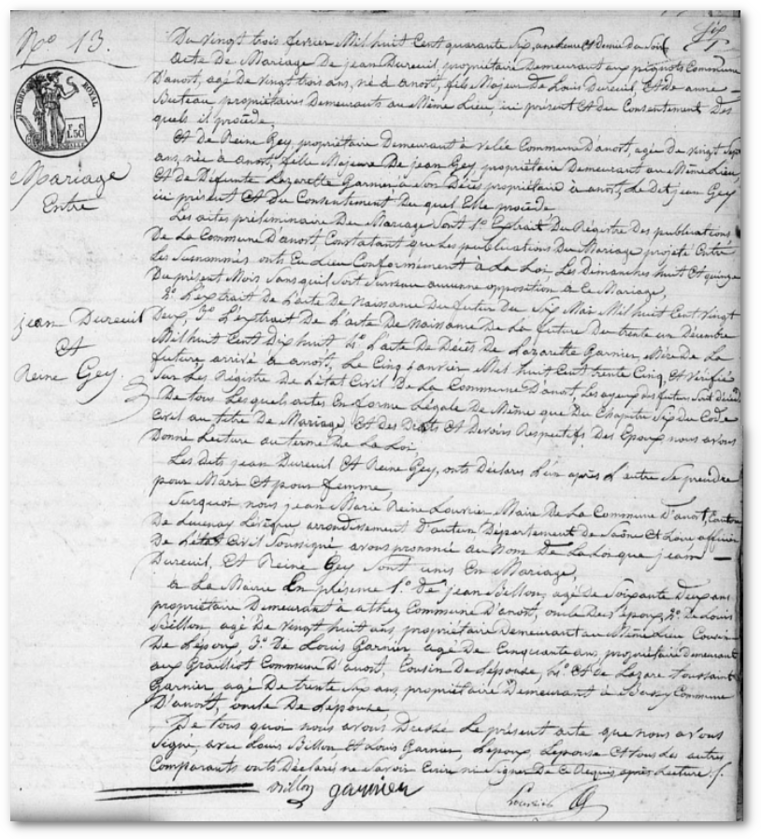 N° 13.
Mariage
Entre
jean Dureuil
Et
Reine Gey.
Six
Du vingt trois fevrier Mil huit Cent quarante Six, une heure Et Demie Du Soir
Acte De Mariage De jean Dureuil, propriétaire Demeurant aux pignots Commune
D'anost, agé De vingt trois ans, né à anost, fils Majeur De Louis Dureuil, Et De anne
Buteau, propriétaires Demeurants au Même Lieu, ici présent Et Du Consentement Des
quels il procède.
Et De Reine Gey, propriétaire Demeurant à velée Commune D'anost, agée De vingt Sept
ans, née à anost, fille Majeure De jean Gey propriétaire Demeurant au Même Lieu,
Et De Defunte Lazarette Garnier à Son Décès propriétaire à anost, Le Dit jean Gey
ici présent Et Du Consentement Du quel Elle procède
Les actes préliminaire Du Mariage Sont 1° Extrait Du Régistre Des publications
De La Commune D'anost, Constatant que Les publications Du Mariage projeté Entre
Les Susnommés onts Eu Lieu Conformément à La Loi, Les Dimanches huit Et quinze
Du présent Mois Sans quil Soit Survenu aucunne opposition à Ce Mariage,
2° L'extrait De L'acte De Naissance Du futur Du Six Mai Mil huit Cent vingt
Deux, 3° L'extrait De L'acte De Naissance De La future Du trente un Décembre
Mil huit Cent Dix huit, 4° L'acte De Décès De Lazarette Garnier, Mère De La
future, arrivé à anost, Le Cinq janvier Mil huit Cent trente Cinq, Et Vérifié
Sur Les Régistre De L'état Civil De La Commune D'anost, Les ayeux Des futurs Sont Décédés
De tous Lesquels actes En forme Légale De Même que Du Chapitre Six Du Code
Civil au titre De Mariage, Et Des Droits Et Devoirs Respectifs Des Epoux, nous avons
Donné Lecture au terme De La Loi,
Les Dits jean Dureuil Et Reine Gey, onts Déclarés L'un après L'autre Se prendre
pour Mari Et pour femme,
Surquoi, nous jean Marie Reine Louvrier Maire De La Commune D'anost, Canton
De Lucenay Levêque arrondissement D'autun, Département De Saône Et Loire officier
De L'état Civil Soussigné avons prononcé au Nom De La Loi que jean
Dureuil, Et Reine Gey Sont unis En Mariage
à La Mairie En présence 1° De jean Billon, agé De Soixante Deux ans
propriétaire Demeurant à athez Commune D'anost, oncle De L'époux, 2° De Louis
Billon, agé De Vingt huit ans, propriétaire Demeurant au Même Lieu Cousin
De Lépoux, 3° De Louis Garnier agé De Cinquante ans, propriétaire Demeurant
aux Graillot Commune D'anost, Cousin De Lépouse, 4° Et De Lazare toussaint
Garnier agé De trente Six ans, propriétaire Demeurant à Bussy Commune
D'anost, oncle De Lépouse
De tous quoi nous avons Dressé Le présent acte que nous avons
Signé, avec Louis Billon, Et Louis Garnier, Lépoux, Lépouse Et tous Les autres
Comparants onts Déclarés ne Savoir Ecrire ni Signer De Ce Requis après Lecture.
Billon garnier
Louvrier